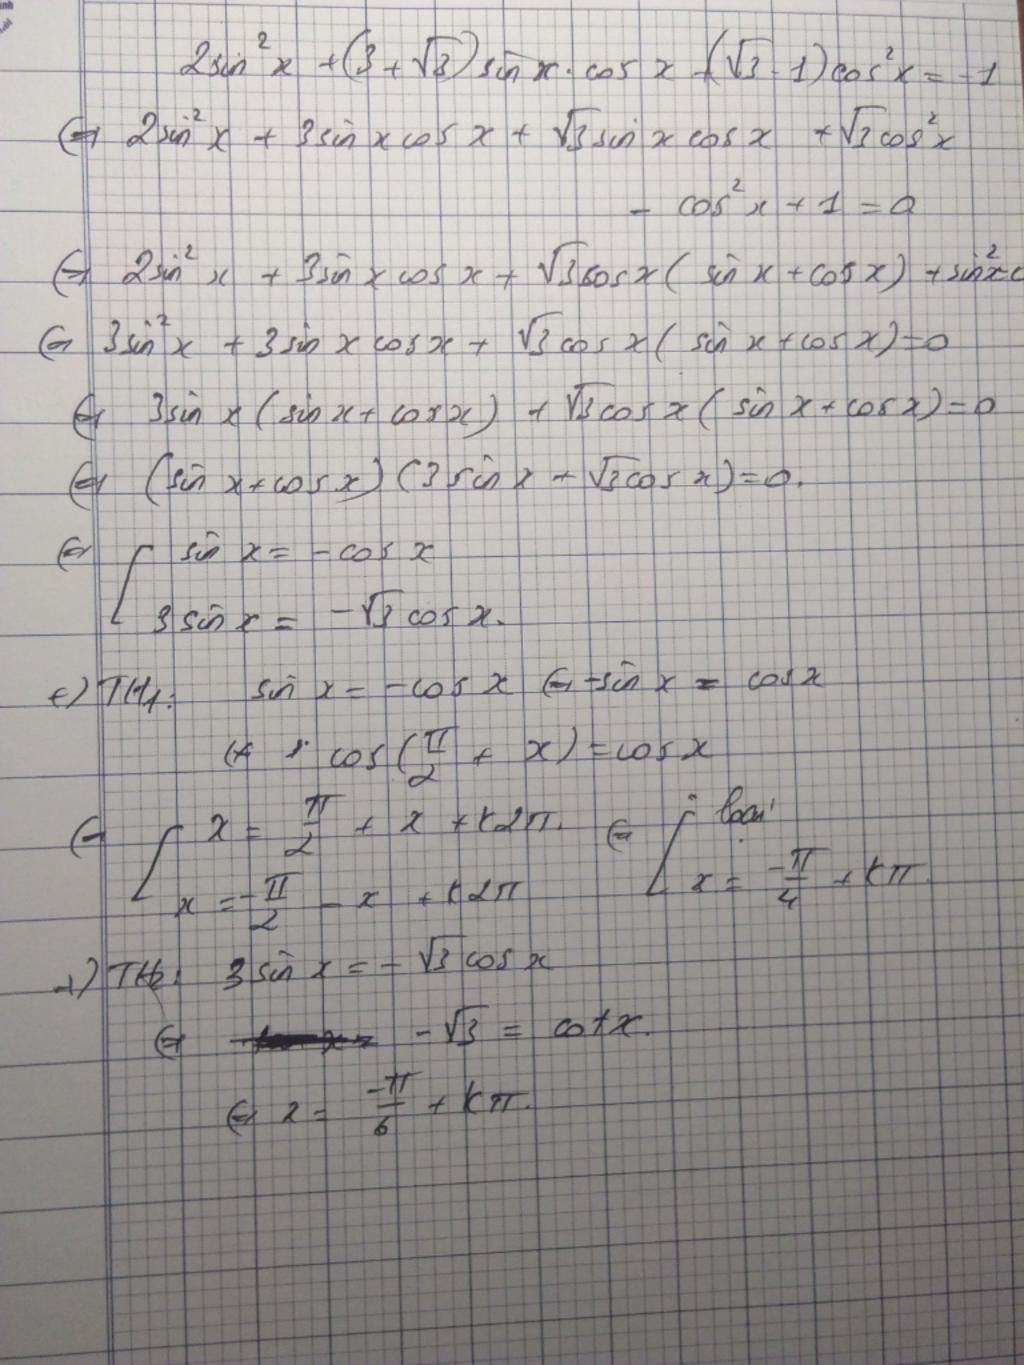 2sin²x + (3+√3)sin x. cos x + (√3-1)cos²x = -1
⇔ 2sin²x + 3sin x cos x + √3 sin x cos x + √3 cos²x
- cos²x + 1 = 0
⇔ 2sin²x + 3sin x cos x + √3 cos x ( sin x + cos x) + sin²x
⇔ 3sin²x + 3sin x cos x + √3 cos x ( sin x + cos x) = 0
⇔ 3sin x (sin x + cos x) + √3 cos x ( sin x + cos x) = 0
⇔ (sin x + cos x) (3 sin x + √3 cos x) = 0.
⇔ [ sin x = - cos x
3 sin x = -√3 cos x.
+) TH1: sin x = - cos x ⇔ - sin x = cos x
⇔ cos(π/2 + x) = cos x
⇔ [ x = π/2 + x + k2π. ⇔ [ loại
x = -π/2 - x + k2π x = -π/4 + kπ.
+) TH2: 3 sin x = - √3 cos x
⇔ -√3 = cot x.
⇔ x = -π/6 + kπ.